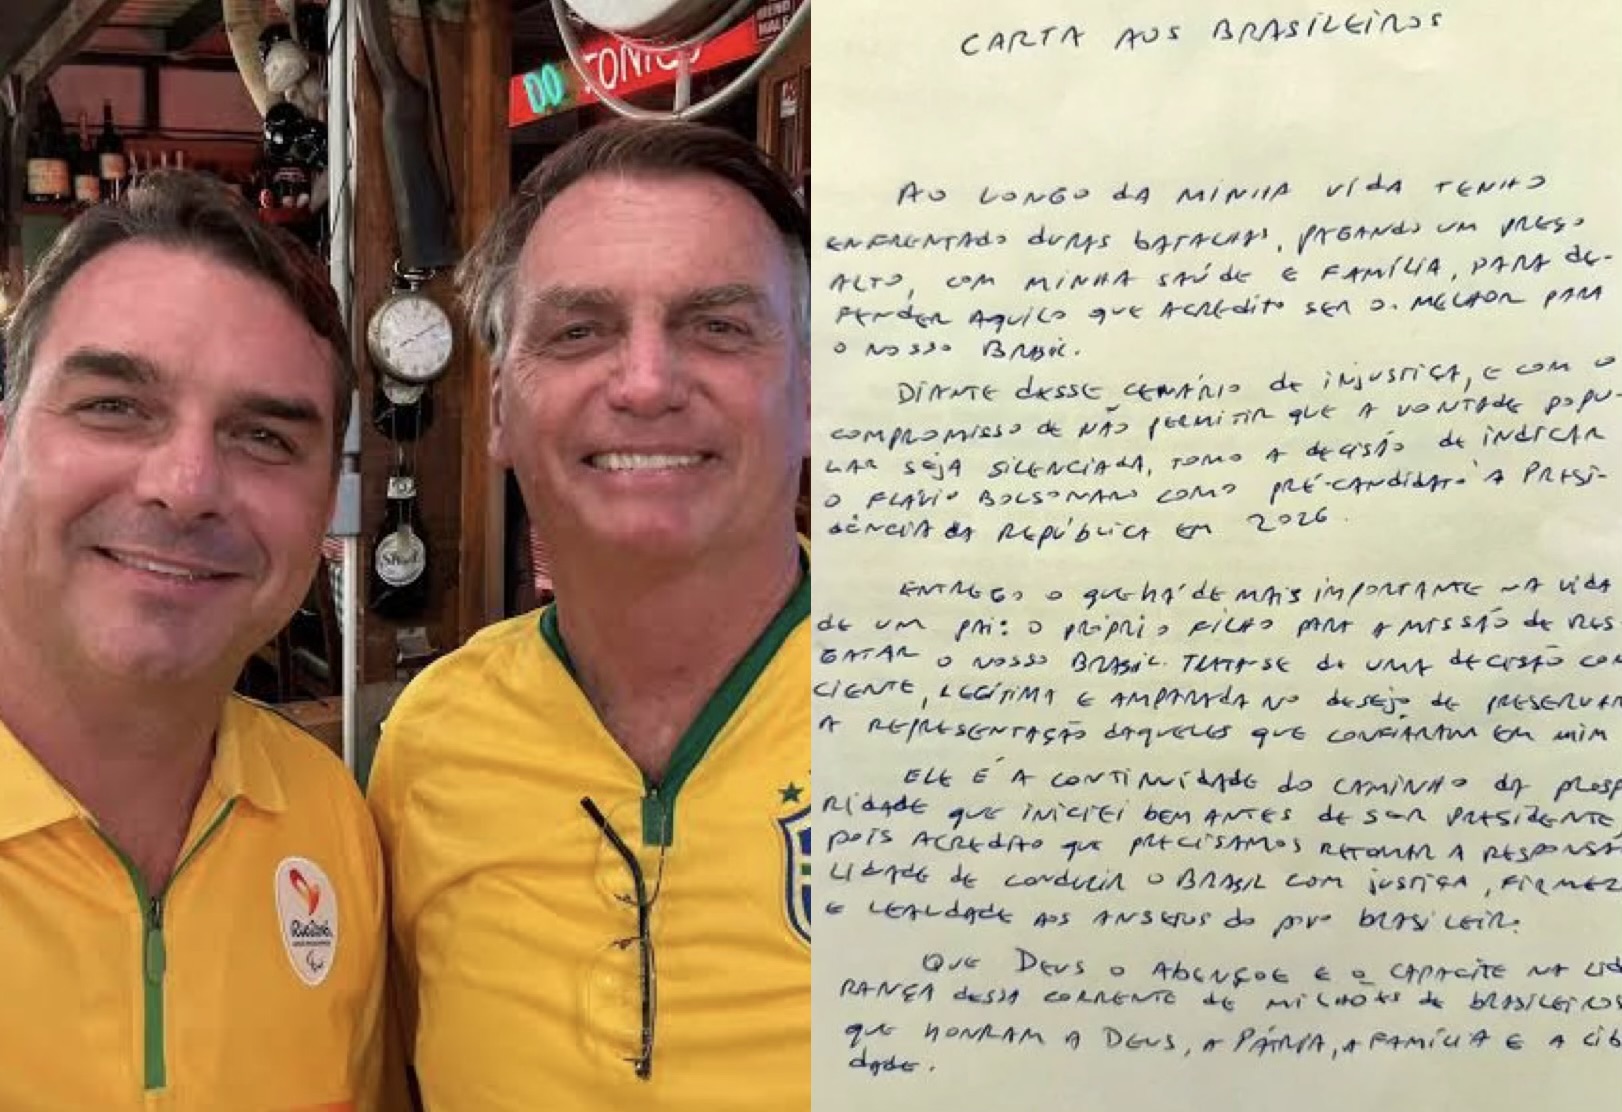 DO TONICO
Rio2016
CARTA AOS BRASILEIROS
AO LONGO DA MINHA VIDA TENHO
ENFRENTADO DURAS BATALHAS, PAGANDO UM PREÇO
ALTO, COM MINHA SAÚDE E FAMÍLIA, PARA DE-
FENDER AQUILO QUE ACREDITO SER O MELHOR PARA
O NOSSO BRASIL.
DIANTE DESSE CENÁRIO DE INJUSTIÇA, E COM O
COMPROMISSO DE NÃO PERMITIR QUE A VONTADE POPU-
LAR SEJA SILENCIADA, TOMO A DECISÃO DE INDICAR
O FLÁVIO BOLSONARO COMO PRÉ-CANDIDATO À PRESI-
DÊNCIA DA REPÚBLICA EM 2026.
ENTREGO O QUE HÁ DE MAIS IMPORTANTE NA VIDA
DE UM PAI: O PRÓPRIO FILHO PARA A MISSÃO DE RES
GATAR O NOSSO BRASIL. TRATA-SE DE UMA DECISÃO CON
CIENTE, LEGÍTIMA E AMPARADA NO DESEJO DE PRESERVAR
A REPRESENTAÇÃO DAQUELES QUE CONFIARAM EM MIM
ELE É A CONTINUIDADE DO CAMINHO DA PROSP
RIDADE QUE INICIEI BEM ANTES DE SER PRESIDENTE,
POIS ACREDITO QUE PRECISAMOS RETOMAR A RESPONSA
LIDADE DE CONDUZIR O BRASIL COM JUSTIÇA, FIRMEZ
E LEALDADE AOS ANSEIOS DO POVO BRASILEIRO.
QUE DEUS O ABENÇOE E O CAPACITE NA LID
RANÇA DESSA CORRENTE DE MILHÕES DE BRASILEIROS
QUE HONRAM A DEUS, A PÁTRIA, A FAMÍLIA E A LIB
DADE.